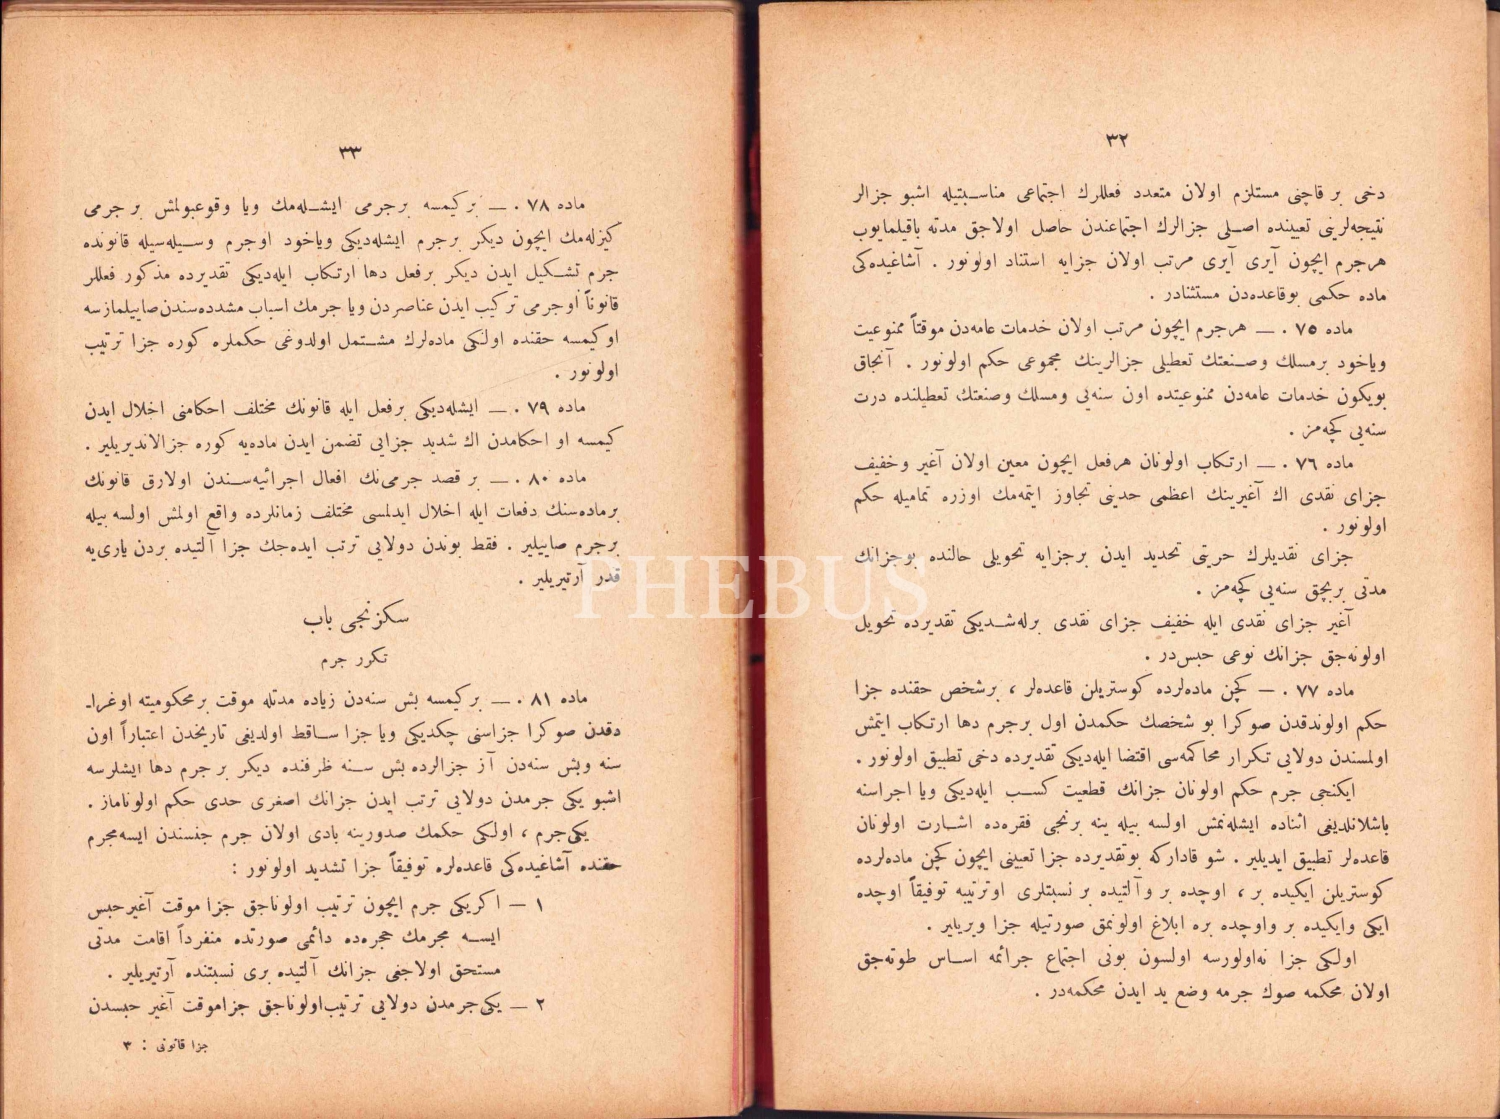 ٣٢
دخی بر قاچنی مستلزم اولان متعدد فعللرك اجتماعی مناسبتیله اشبو جزالر
نتیجه‌لرینی تعیینده اصلی جزالرك اجتماعندن حاصل اولاجق مدته باقیلمایوب
هرجرم ایچون آیری آیری مرتب اولان جزایه استناد اولونور . آشاغیده‌كی
ماده حكمی بوقاعده‌دن مستثنادر .
ماده ٧٥ . — هرجرم ایچون مرتب اولان خدمات عامه‌دن موقتاً ممنوعیت
ویاخود برمسلك وصنعتك تعطیلی جزالرینك مجموعی حكم اولونور . آنجاق
بویكون خدمات عامه‌دن ممنوعیتده اون سنه‌یی ومسلك وصنعتك تعطیلنده درت
سنه‌یی كچه‌مز .
ماده ٧٦ . — ارتكاب اولونان هرفعل ایچون معین اولان آغیر وخفیف
جزای نقدی اك آغیرینك اعظمی حدینی تجاوز ایتمه‌مك اوزره تمامیله حكم
اولونور .
جزای نقدیلرك حریتی تحدید ایدن برجزایه تحویلی حالنده بوجزانك
مدتی بربچق سنه‌یی كچه‌مز .
آغیر جزای نقدی ایله خفیف جزای نقدی برله‌شدیكی تقدیرده تحویل
اولونه‌جق جزانك نوعی حبس‌در .
ماده ٧٧ . — كچن ماده‌لرده كوستریلن قاعده‌لر ، برشخص حقنده جزا
حكم اولوندقدن صوكرا بو شخصك حكمدن اول برجرم دها ارتكاب ایتمش
اولمسندن دولایی تكرار محاكمه‌سی اقتضا ایله‌دیكی تقدیرده دخی تطبیق اولونور .
ایكنجی جرم حكم اولونان جزانك قطعیت كسب ایله‌دیكی ویا اجراسنه
باشلانلدیغی اثناده ایشله‌نمش اولسه بیله ینه برنجی فقره‌ده اشارت اولونان
قاعده‌لر تطبیق ایدیلیر . شو قداركه بوتقدیرده جزا تعیینی ایچون كچن ماده‌لرده
كوستریلن ایكیده بر ، اوچده بر وآلتیده بر نسبتلری اوترتیبه توفیقاً اوچده
ایكی وایكیده بر واوچده بره ابلاغ اولونمق صورتیله جزا ویریلیر .
اولكی جزا نه‌اولورسه اولسون بونی اجتماع جرائمه اساس طوته‌جق
اولان محكمه صوك جرمه وضع ید ایدن محكمه‌در .
٣٣
ماده ٧٨ . — بركیمسه برجرمی ایشله‌مك ویا وقوعبولمش برجرمی
كیزله‌مك ایچون دیكر برجرم ایشله‌دیكی ویاخود اوجرم وسیله‌سیله قانونده
جرم تشكیل ایدن دیكر برفعل دها ارتكاب ایله‌دیكی تقدیرده مذكور فعللر
قانوناً اوجرمی تركیب ایدن عناصردن ویا جرمك اسباب مشدده‌سندن صاییلمازسه
اوكیمسه حقنده اولكی ماده‌لرك مشتمل اولدوغی حكملره كوره جزا ترتیب
اولونور .
ماده ٧٩ . — ایشله‌دیكی برفعل ایله قانونك مختلف احكامنی اخلال ایدن
كیمسه او احكامدن اك شدید جزایی تضمن ایدن ماده‌یه كوره جزالاندیریلیر .
ماده ٨٠ . — بر قصد جرمی‌نك افعال اجرائیه‌سندن اولارق قانونك
برماده‌سنك دفعات ایله اخلال ایدلمسی مختلف زمانلرده واقع اولمش اولسه بیله
برجرم صاییلیر . فقط بوندن دولایی ترتب ایده‌جك جزا آلتیده بردن یاری‌یه
قدر آرتیریلیر .
سكزنجی باب
تكرر جرم
ماده ٨١ . — بركیمسه بش سنه‌دن زیاده مدتله موقت برمحكومیته اوغرا-
دقدن صوكرا جزاسنی چكدیكی ویا جزا ساقط اولدیغی تاریخدن اعتباراً اون
سنه وبش سنه‌دن آز جزالرده بش سنه ظرفنده دیكر برجرم دها ایشلرسه
اشبو یكی جرمدن دولایی ترتب ایدن جزانك اصغری حدی حكم اولوناماز .
یكی جرم ، اولكی حكمك صدورینه بادی اولان جرم جنسندن ایسه مجرم
حقنده آشاغیده‌كی قاعده‌لره توفیقاً جزا تشدید اولونور :
١ — اكر یكی جرم ایچون ترتیب اولوناجق جزا موقت آغیر حبس
ایسه مجرمك حجره‌ده دائمی صورتده منفرداً اقامت مدتی
مستحق اولاجغی جزانك آلتیده بری نسبتنده آرتیریلیر .
٢ — یكی جرمدن دولایی ترتیب اولوناجق جزا موقت آغیر حبسدن
جزا قانونی : ٣
PHEBUS